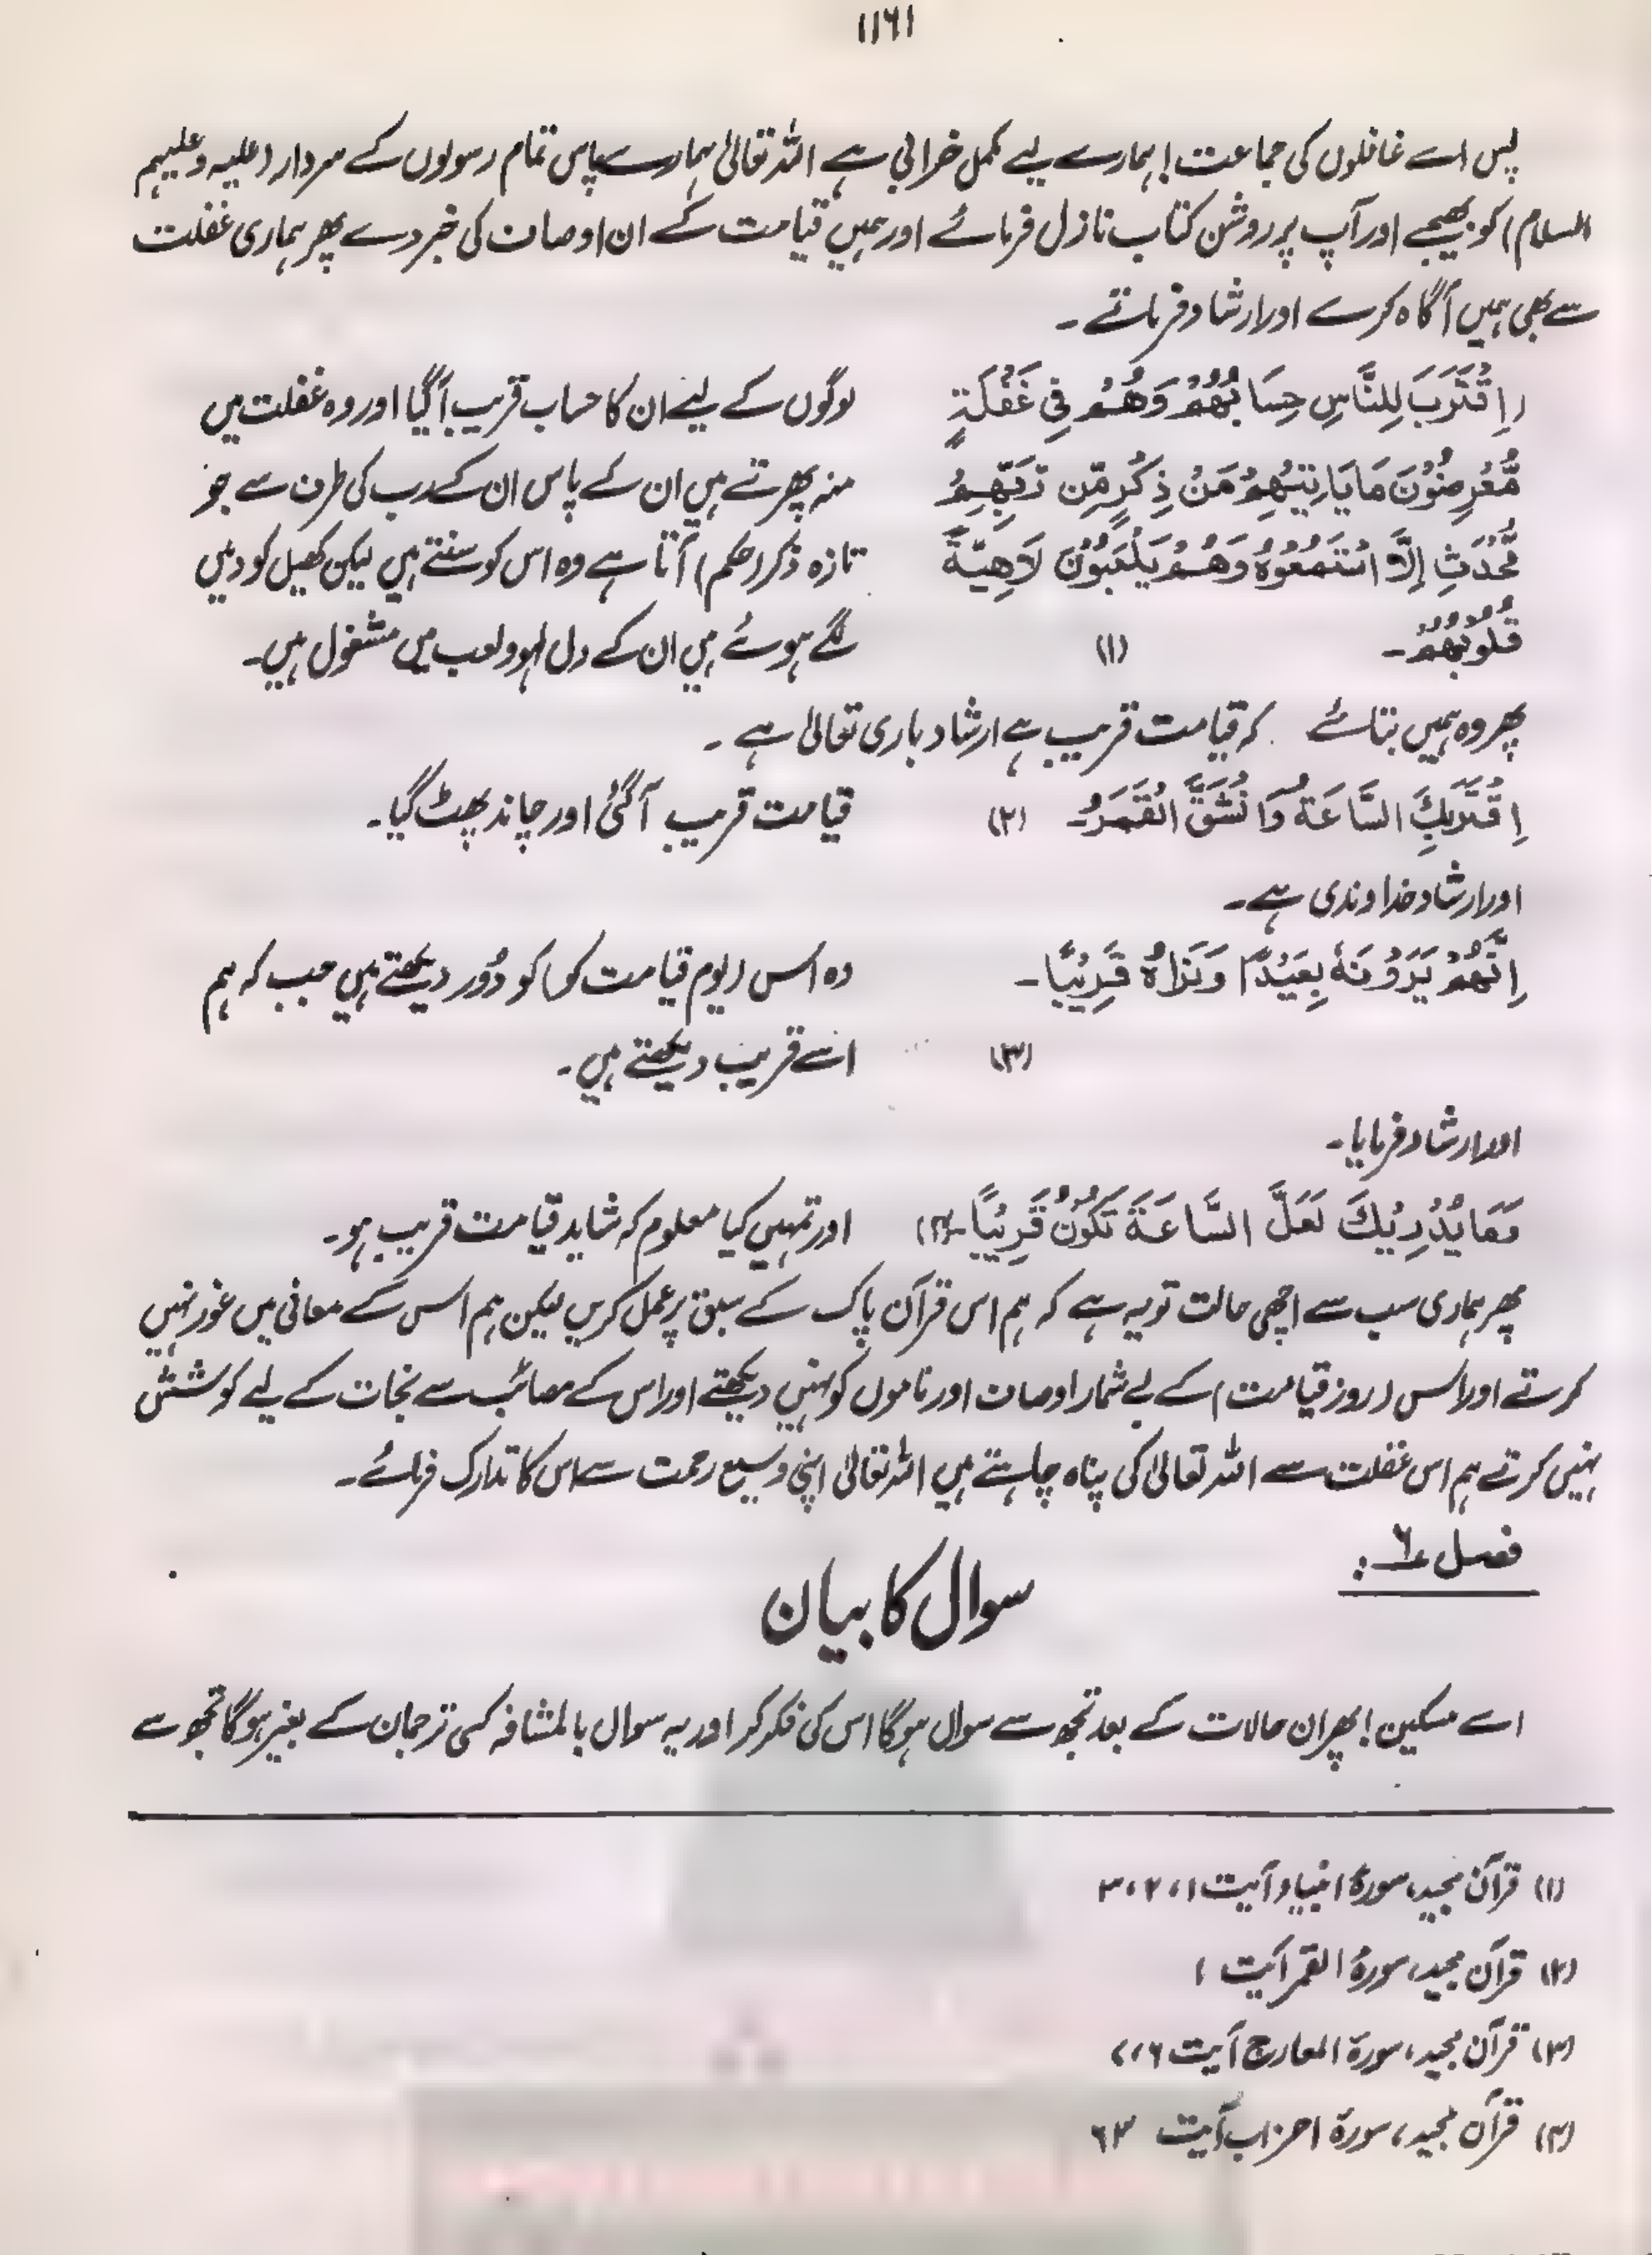 ۱۱۶۱
پس اے غافلوں کی جماعت! ہمارے لیے مکمل خرابی ہے اللہ تعالیٰ ہمارے پاس تمام رسولوں کے سردار (علیہ وعلیہم
السلام) کو بھیجے اور آپ پر روشن کتاب نازل فرمائے اور ہمیں قیامت کے ان اوصاف کی خبر دے پھر ہماری غفلت
سے بھی ہمیں آگاہ کرے اور ارشاد فرماتے۔
اِقْتَرَبَ لِلنَّاسِ حِسَابُهُمْ وَهُمْ فِي غَفْلَةٍ لوگوں کے لیے ان کا حساب قریب آگیا اور وہ غفلت میں
مُّعْرِضُوْنَ مَا يَاْتِيْهِمْ مِّنْ ذِكْرٍ مِّن رَّبِّهِمْ منہ پھرتے ہیں ان کے پاس ان کے رب کی طرف سے جو
مُّحْدَثٍ اِلَّا اسْتَمَعُوْهُ وَهُمْ يَلْعَبُوْنَ لَاهِيَةً تازہ ذکر (حکم) آتا ہے وہ اس کو سنتے ہیں لیکن کھیل کود میں
قُلُوْبُهُمْ۔ (۱) لگے ہوئے ہیں ان کے دل لہو ولعب میں مشغول ہیں۔
پھر وہ ہمیں بتائے کہ قیامت قریب ہے ارشاد باری تعالیٰ ہے۔
اِقْتَرَبَتِ السَّاعَةُ وَانْشَقَّ الْقَمَرُ۔ (۲) قیامت قریب آگئی اور چاند پھٹ گیا۔
اور ارشاد خداوندی ہے۔
اِنَّهُمْ يَرَوْنَهٗ بِعَيْدًا وَنَرَاهُ قَرِيْبًا۔ وہ اس (یوم قیامت کو) کو دُور دیکھتے ہیں جب کہ ہم
(۳) اسے قریب دیکھتے ہیں۔
اور ارشاد فرمایا۔
وَمَا يُدْرِيْكَ لَعَلَّ السَّاعَةَ تَكُوْنُ قَرِيْبًا۔ (۴) اور تمہیں کیا معلوم کہ شاید قیامت قریب ہو۔
پھر ہماری سب سے اچھی حالت تو یہ ہے کہ ہم اس قرآن پاک کے سبق پر عمل کریں لیکن ہم اس کے معانی میں غور نہیں
کرتے اور اس (روز قیامت) کے بے شمار اوصاف اور ناموں کو نہیں دیکھتے اور اس کے مصائب سے نجات کے لیے کوشش
نہیں کرتے ہم اس غفلت سے اللہ تعالیٰ کی پناہ چاہتے ہیں اللہ تعالیٰ اپنی وسیع رحمت سے اس کا تدارک فرمائے۔
فصل ۶:
سوال کا بیان
اے مسکین! پھر ان حالات کے بعد تجھ سے سوال ہوگا اس کی فکر کر اور یہ سوال بالمشافہ کسی ترجمان کے بغیر ہوگا تجھ سے
(۱) قرآن مجید، سورۂ انبیاء آیت ۱، ۲، ۳
(۲) قرآن مجید، سورۂ القمر آیت ۱
(۳) قرآن مجید، سورۃ المعارج آیت ۶، ۷
(۴) قرآن مجید، سورۃ احزاب آیت ۶۳